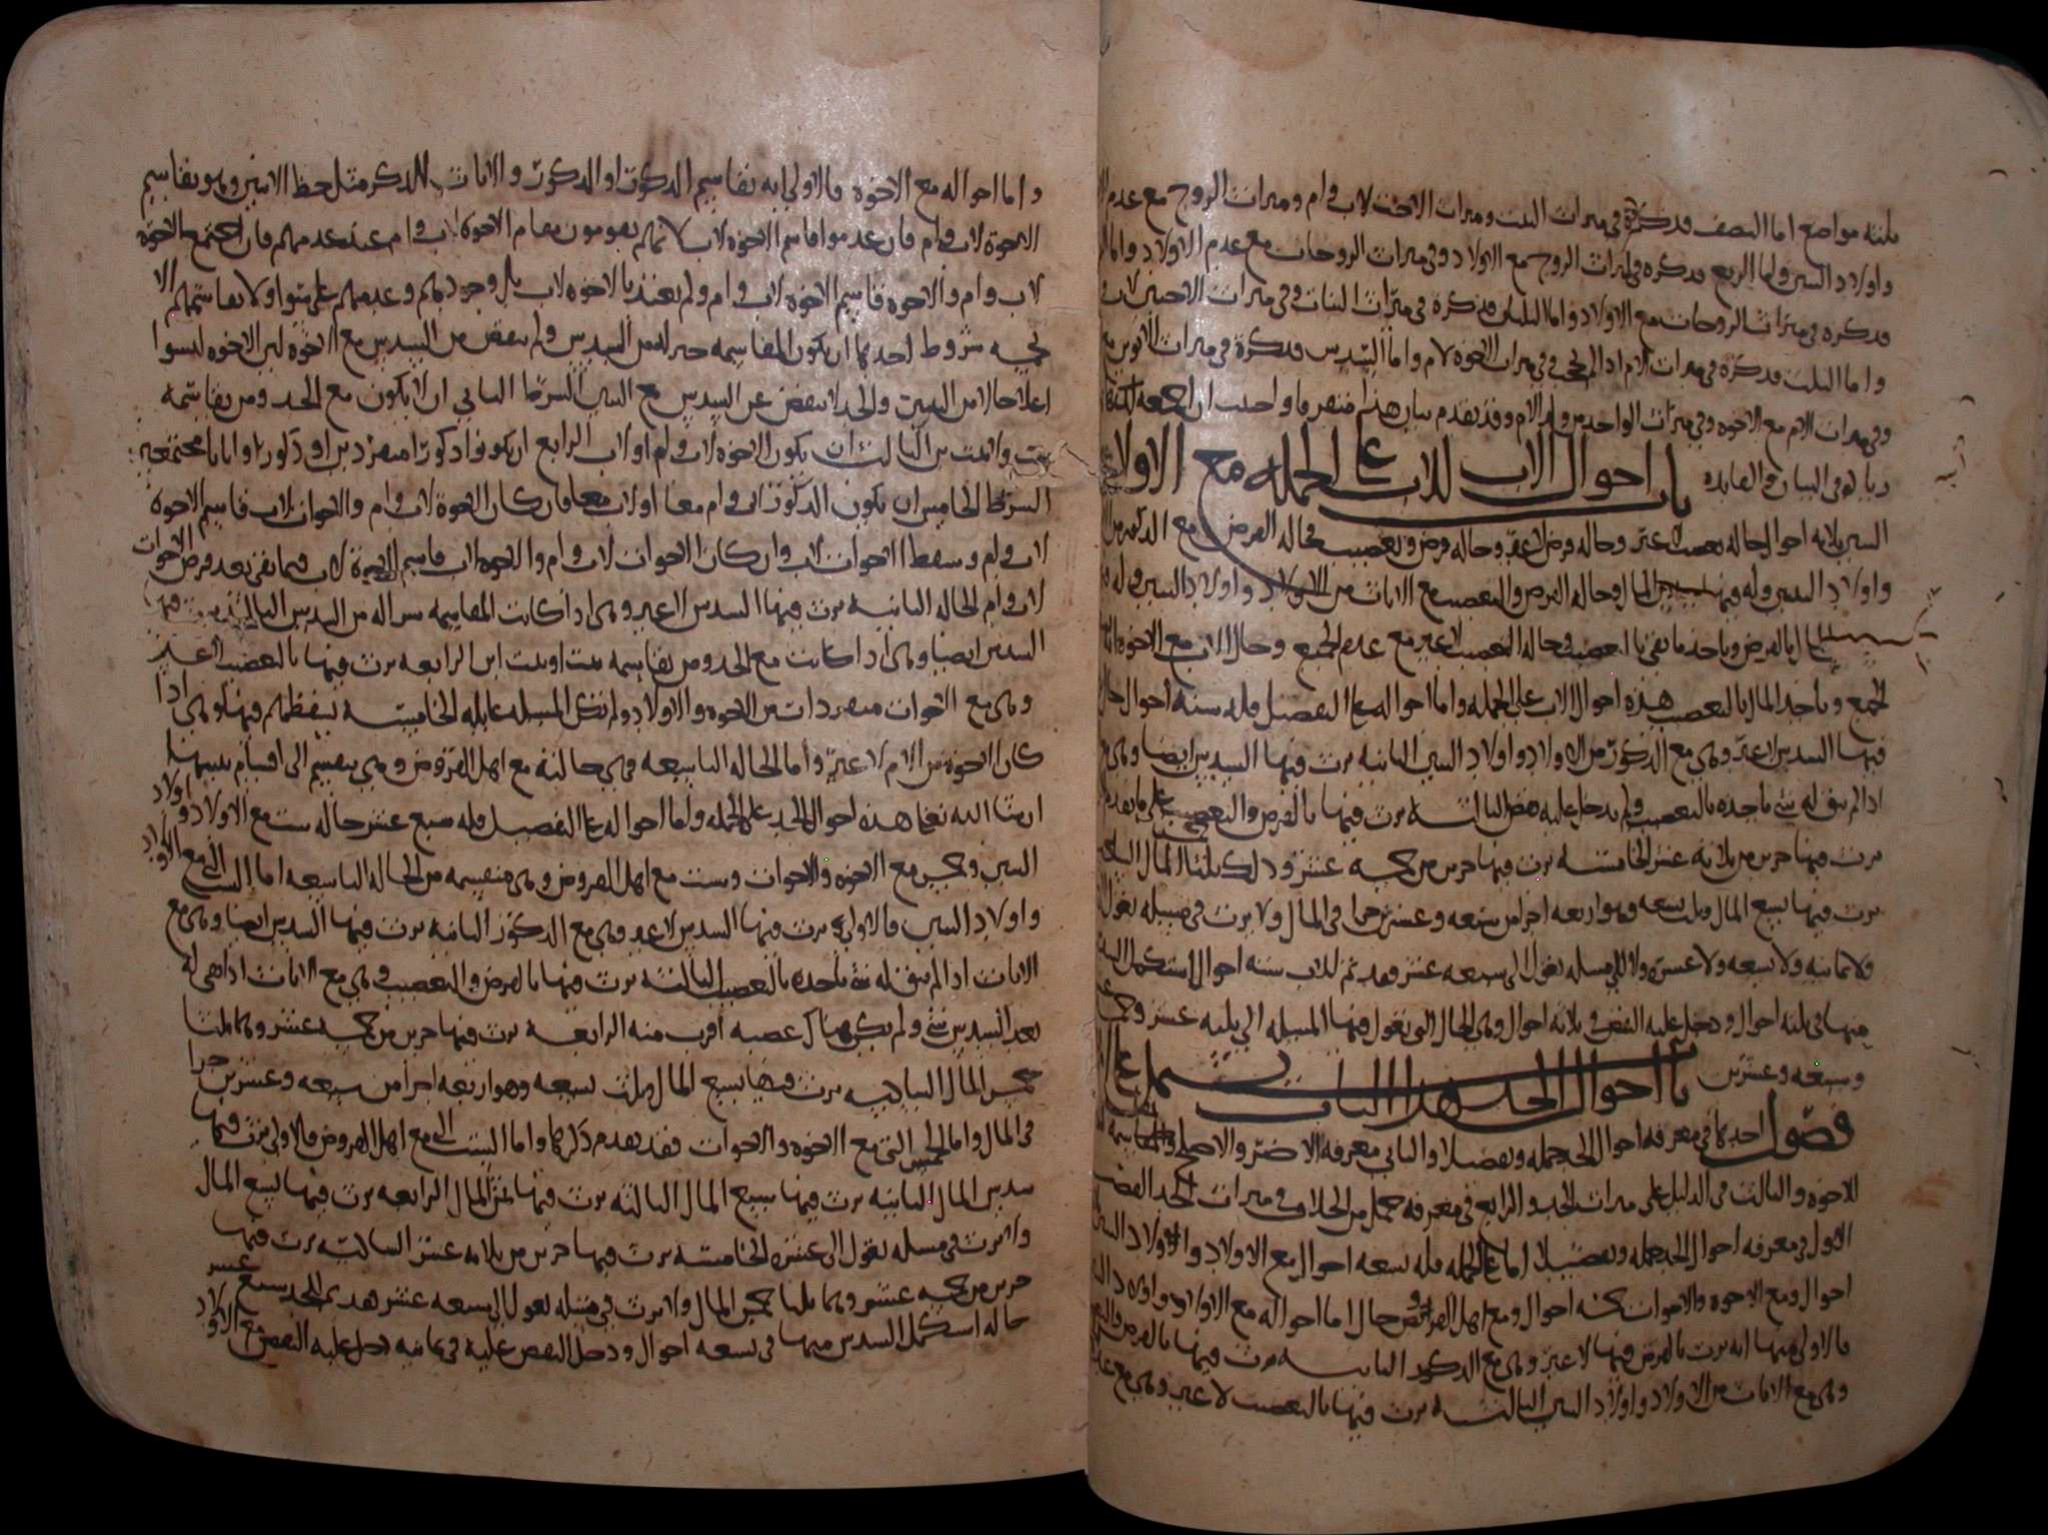 ثلثه مواضع اما النصف فذكره في ميراث البنت وميراث الاخت لاب وام وميراث الزوج مع عدم
واولاد البنين واما الربع فذكره في ميراث الزوج مع الاولاد وفي ميراث الزوجات مع عدم الاولاد واما
فذكره في ميراث الزوجات مع الاولاد واما الثلثان فذكره في ميراث البنات وفي ميراث الاختين لاب
واما الثلث فذكره في ميراث الام اذا لم تحجب وفي ميراث الاخوه لام واما السدس فذكره في ميراث الابوين
وفي ميراث الام مع الاخوه وفي ميراث الواحد من ولد الام وقد تقدم بيان هذا واحببت ان اجمعه
زياده في البيان والفايده باب احوال الاب للاب على الجمله مع الاولاد
البنين ثلاثه احوال حاله تعصيب لا غير وحاله فرض لا غير وحاله فرض وتعصيب فحاله الفرض مع الذكور من
واولاد البنين وله فيها سدس المال وحاله الفرض والتعصيب مع الاناث من الاولاد واولاد البنين وله
المال بالفرض وياخذ ما بقي بالتعصيب وحاله التعصيب لا غير مع عدم الجميع وحال الاب مع الاخوه
الجميع وياخذ المال بالتعصيب هذه احوال الاب على الجمله واما احواله على التفصيل فله سته احوال
فيها السدس لا غير وهي مع الذكور من الاولاد واولاد البنين الثانيه يرث فيها السدس ايضا وهي
اذا لم يبق له شي ياخذه بالتعصيب ولم يدخل عليه نقص الثالثه يرث فيها بالفرض والتعصيب على ما تقدم
يرث فيها جزين من ثلاثه عشر الخامسه يرث فيها جزين من خمسه عشر وذلك ثلثا المال
يرث فيها تسع المال وثلث تسعه وهو اربعه اجزا من سبعه وعشرين جزا في المال ولا يرث في مسله تعول
ولا ثمانيه ولا تسعه ولا عشره ولا الى مسله تعول الى سبعه عشر فقد تم للاب سته احوال استكمل
منها في ثلثه احوال ودخل عليه النقص في ثلاثه احوال وهي الحال التي تعول فيها المسله الى ثلثه عشر
وسبعه وعشرين باب احوال الجد هذا الباب يشتمل على
فصول احدها في معرفه احوال الجد جمله وتفصيلا والثاني معرفه الاضر والاصلح في المقاسمه
للاخوه والثالث في الدليل على ميراث الجد والرابع في معرفه جمل من الخلاف في ميراث الجد الفصل
الاول في معرفه احوال الجد جمله وتفصيلا اما على الجمله فله تسعه احوال مع الاولاد واولاد
احوال ومع الاخوه والاخوات خمسه احوال ومع اهل الفرايض حال اما احواله مع الاولاد واولاد
فالاولى منها انه يرث بالفرض فيها لا غير وهي مع الذكور الثانيه يرث فيها بالفرض
وهي مع الاناث من الاولاد واولاد البنين الثالثه يرث فيها بالتعصيب لا غير وهي مع
واما احواله مع الاخوه فالاولى انه يقاسم الذكور او الذكور والاناث للذكر مثل حظ الانثيين وهو يقاسم
الاخوه لاب وام فان عدموا قاسم الاخوه لاب لانهم يقومون مقام الاخوه لاب وام عند عدمهم فان اجتمع الاخوه
لاب وام والاخوه قاسم الاخوه لاب وام ولم يعتد بالاخوه لاب بل وجودهم وعدمهم على سوا ولا يقاسمهم الا
بخمسه شروط احدها ان يكون المقاسمه خيرا له من السدس ولم ينقص من السدس مع الاخوه لان الاخوه ليسوا
اعلا حالا من البنين والجد لا ينقص عن السدس مع البنين الشرط الثاني ان لا يكون مع الجد ومن يقاسمه
بنت وابنت ابن الثالث ان يكون الاخوه لاب وام او لاب الرابع ان يكونوا ذكورا منفردين او ذكورا واناثا مجتمعين
الشرط الخامس ان يكون الذكور لاب وام معا او لاب معا فان كان الاخوه لاب وام والاخوات لاب قاسم الاخوه
لاب وام وسقط الاخوات لاب وان كان الاخوات لاب وام والاخوه لاب قاسم الاخوه لاب فيما بقي بعد فرض الاخوات
لاب وام الحاله الثانيه يرث فيها السدس لا غير وهي اذا كانت المقاسمه شرا له من السدس الثالثه يرث فيها
السدس ايضا وهي اذا كانت مع الجد ومن يقاسمه بنت او بنت ابن الرابعه يرث فيها بالتعصيب لا غير
وهي مع الاخوات منفردات من الاخوه والاولاد ولم تكن المسله عايله الخامسه يسقطهم فيها وهي اذا
كان الاخوه من الام لا غير واما الحاله التاسعه فهي حالته مع اهل الفروض وهي تنقسم الى اقسام نبينها
ان شا الله تعالى هذه احوال الجد على الجمله واما احواله على التفصيل فله سبع عشر حاله ست مع الاولاد واولاد
البنين وخمس مع الاخوه والاخوات وست مع اهل الفروض وهي منقسمه من الحاله التاسعه اما الست التي مع الاولاد
واولاد البنين فالاولى يرث فيها السدس لا غير وهي مع الذكور الثانيه يرث فيها السدس ايضا وهي مع
الاناث اذا لم يبق له شي ياخذه بالتعصيب الثالثه يرث فيها بالفرض والتعصيب وهي مع الاناث اذا بقي له
بعد السدس شي ولم يكن هناك عصبه اقرب منه الرابعه يرث فيها جزين من خمسه عشر وهما ثلثا
خمس المال السادسه يرث فيها تسع المال وثلث تسعه وهو اربعه اجزا من سبعه وعشرين جزا
في المال واما الخمس التي مع الاخوه والاخوات فقد تقدم ذكرها واما الست التي مع اهل الفروض فالاولى يرث فيها
سدس المال الثانيه يرث فيها سبع المال الثالثه يرث فيها ثمن المال الرابعه يرث فيها تسع المال
ولا يرث في مسله تعول الى عشره الخامسه يرث فيها جزين من ثلاثه عشر السادسه يرث فيها
جزين من خمسه عشر وهما ثلثا خمس المال ولا يرث في مسله تعول الى سبعه عشر هذه للجد سبع عشر
حاله استكمل السدس منها في تسعه احوال ودخل النقص عليه في ثمانيه دخل عليه النقص مع الاولاد